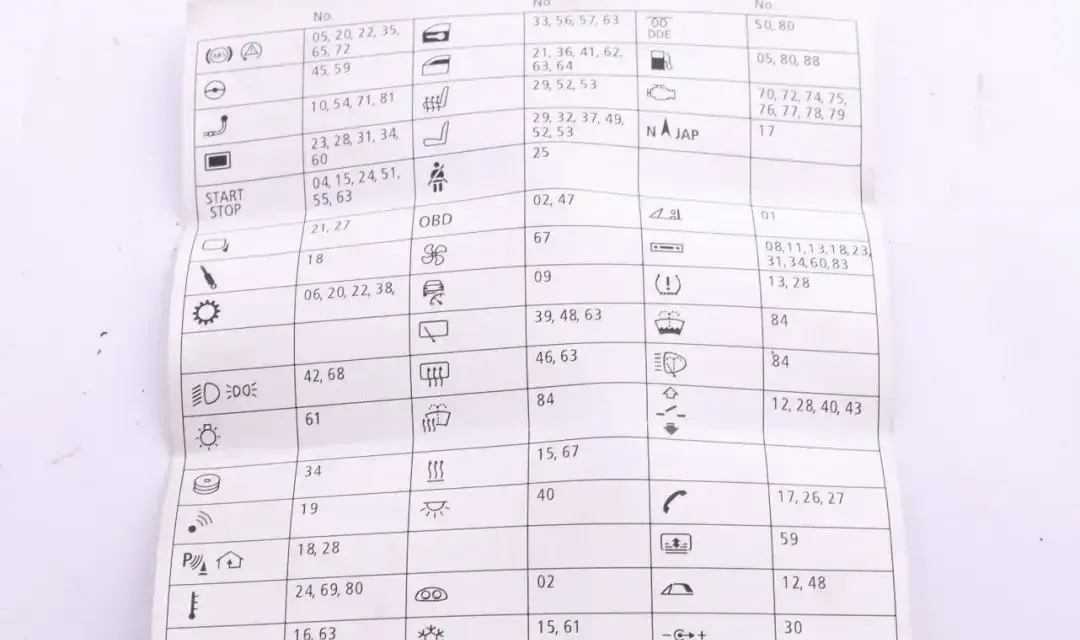 No.
No
No.
05, 20, 22, 35,
65, 72
33, 56, 57, 63
DDE
50, 80
45, 59
21, 36, 41, 62,
63, 64
05, 80, 88
10, 54, 71, 81
29, 52, 53
70, 72, 74, 75,
76, 77, 78, 79
23, 28, 31, 34,
60
29, 32, 37, 49,
52, 53
N JAP
17
START
STOP
04, 15, 24, 51,
55, 63
25
21, 27
OBD
02, 47
01
18
67
08,11,13,18,23,
31,34,60,83
06, 20, 22, 38,
09
13, 28
39, 48, 63
84
42, 68
46, 63
84
61
84
12, 28, 40, 43
34
15, 67
19
40
17, 26, 27
P
18, 28
59
24, 69, 80
02
12, 48
16, 63
15, 61
30